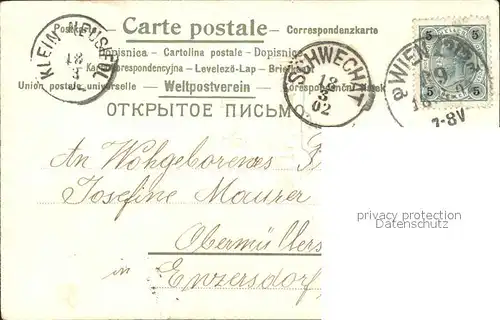 Postkarte Carte postale Correspondenzkarte
Dopisnica – Cartolina postale – Dopisnice
Karta korespondencyjna – Levelező-Lap – Briefkaart
Union postale universelle Weltpostverein
ОТКРЫТОЕ ПИСЬМО
KLEIN NEUSIEDL
SCHWECHAT
18
3
02
WIEN
7-8V
5 5
5 5
An Wohgeborenes
Josefine Maurer
Obermüllers
in Enzersdorf
privacy protection
Datenschutz